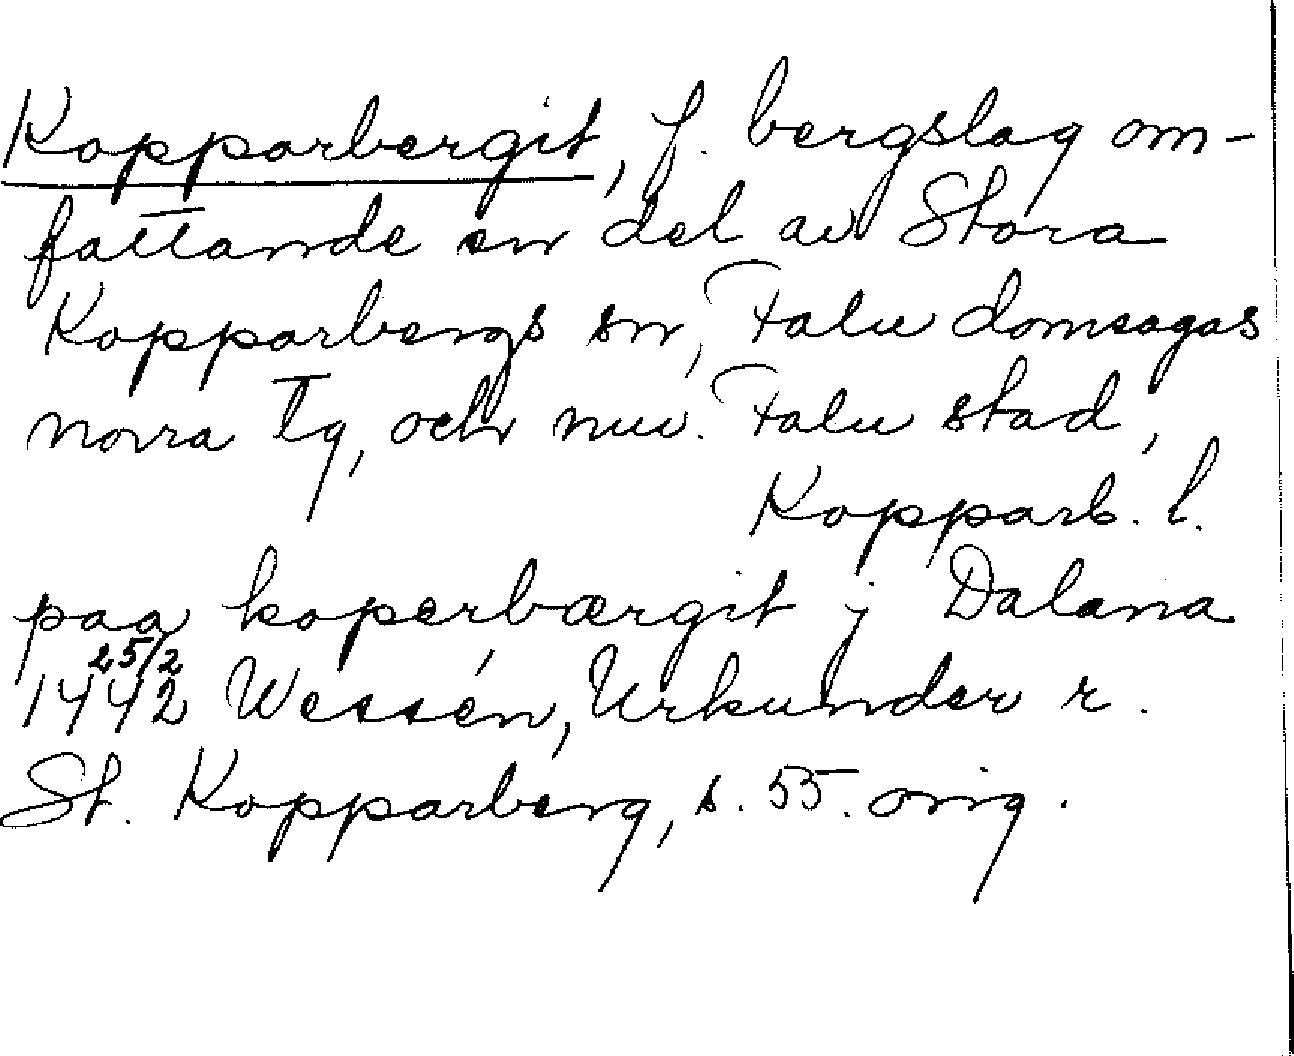 Kopparbergit, f. bergslag om-
fattande en del av Stora
Kopparbergs sn, Falu domsagas
norra tg, och nuv. Falu stad,
Kopparb. l.
paa koperbærgit j Dalana
25/2
1442 Wessén, Urkunder r.
St. Kopparberg, s. 55. orig.